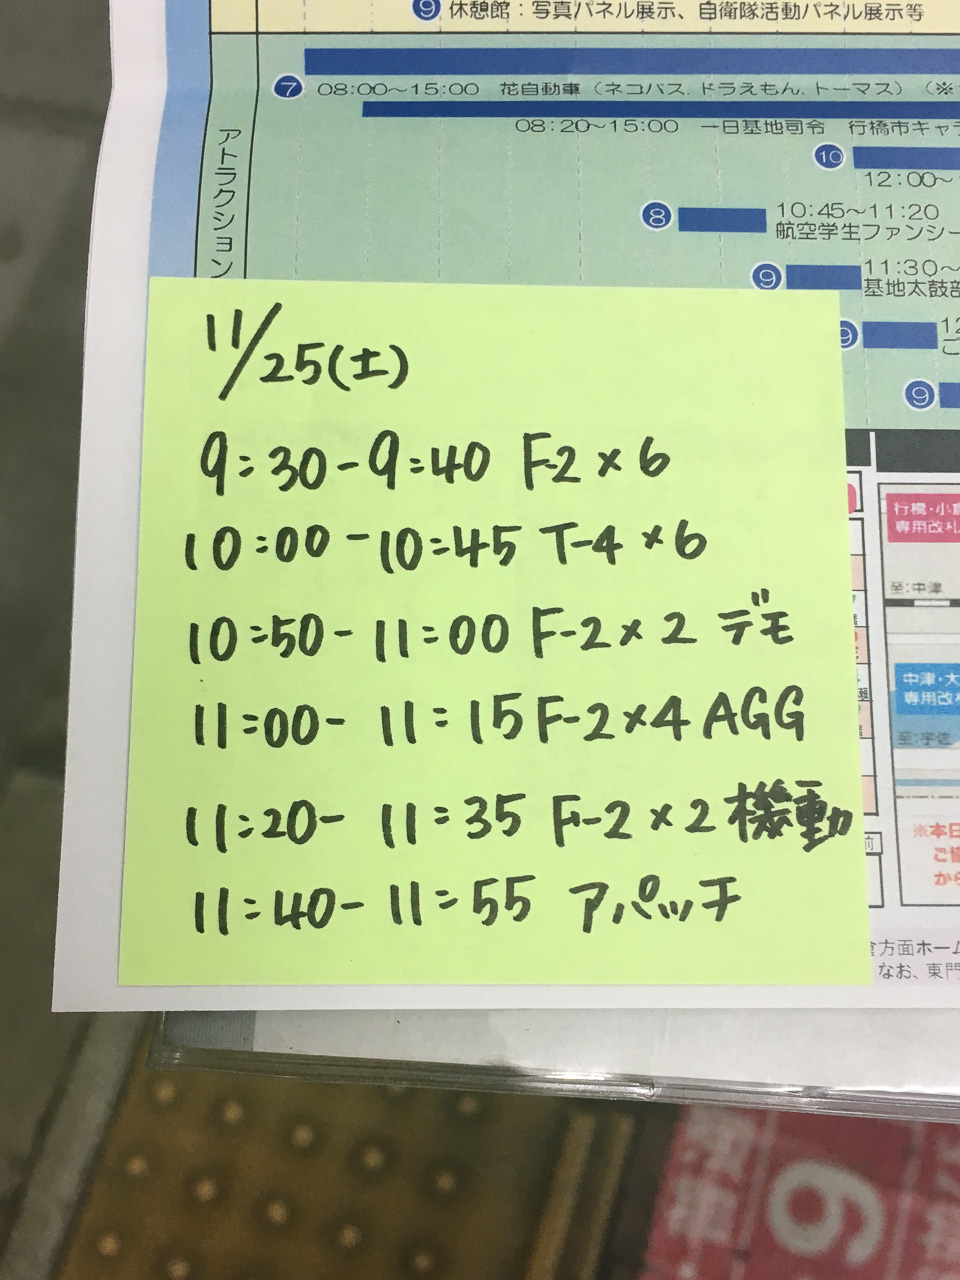 ⑨ 休憩館：写真パネル展示、自衛隊活動パネル展示等
アトラクション
⑦ 08:00〜15:00 花自動車（ネコバス、ドラえもん、トーマス）（※
08:20〜15:00 一日基地司令 行橋市キャラ
⑩
12:00〜
⑧ 10:45〜11:20
航空学生ファンシー
⑨ 11:30〜
基地太鼓部
⑨ 12
ご
⑨
11/25(土)
9:30-9:40 F-2×6
10:00-10:45 T-4×6
10:50-11:00 F-2×2 デモ
11:00-11:15 F-2×4 AGG
11:20-11:35 F-2×2 機動
11:40-11:55 アパッチ
行橋・小倉
専用改札
至:中津
中津・大
専用改札
至:宇佐
※本日
ご協
から
前
倉方面ホーム
なお、東門
9